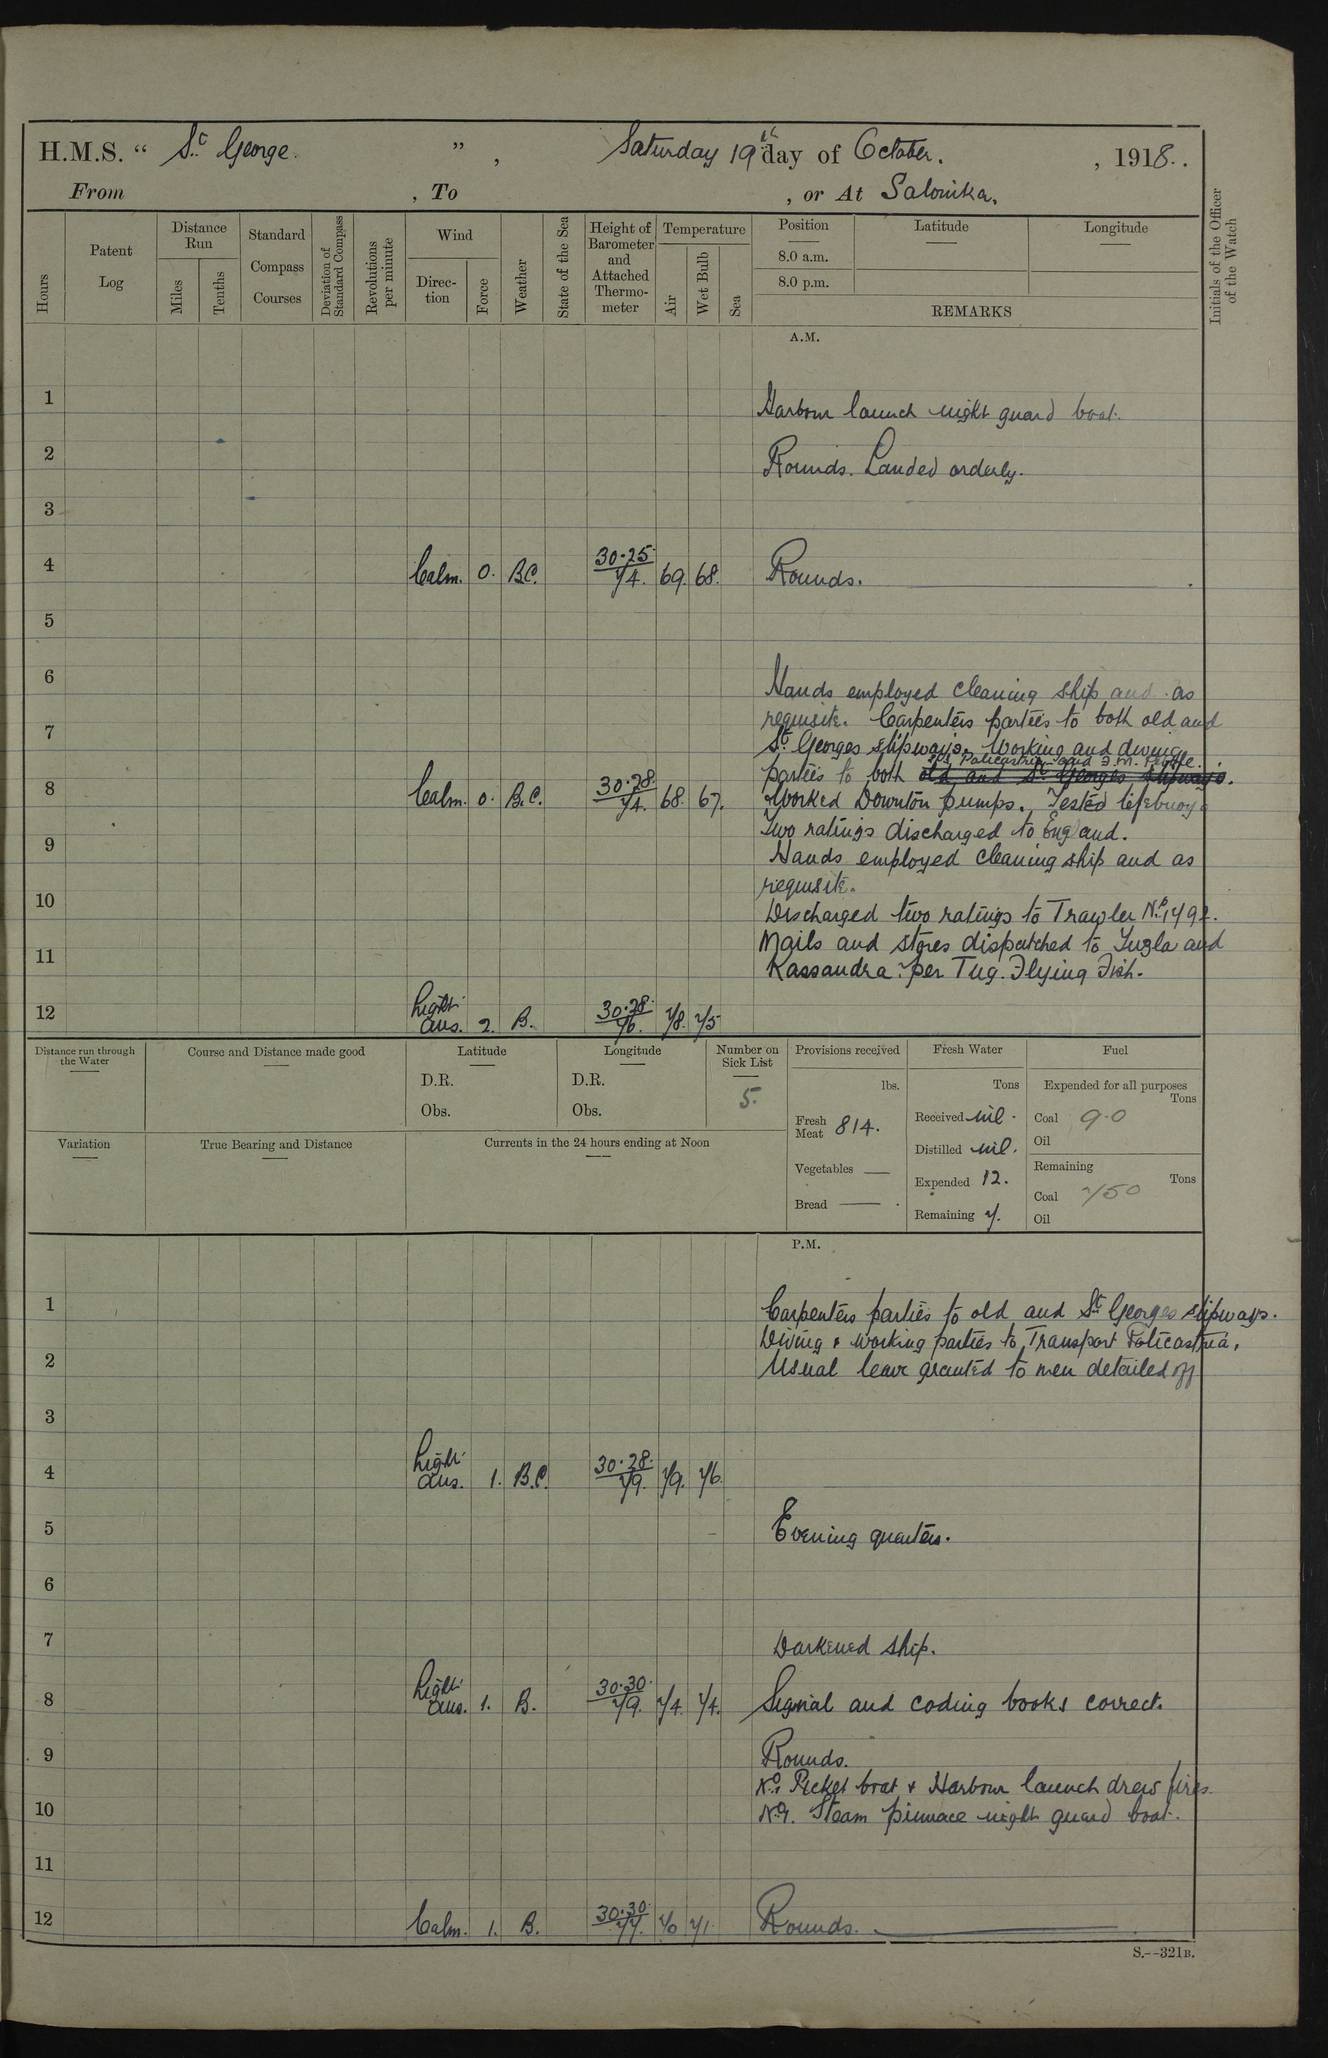 H.M.S. “ St George. ” , Saturday 19th day of October. , 1918.
From , To , or At Salonika.
Hours
Patent Log
Distance Run
Miles
Tenths
Standard Compass Courses
Deviation of Standard Compass
Revolutions per minute
Wind
Direction
Force
Weather
State of the Sea
Height of Barometer and Attached Thermometer
Temperature
Air
Wet Bulb
Sea
Position
8.0 a.m.
8.0 p.m.
Latitude
Longitude
REMARKS
Initials of the Officer of the Watch
A.M.
1 Harbour launch night guard boat.
2 Rounds. Landed orderly.
3
4 Calm. 0. B.C. 30.25. 74. 69. 68. Rounds.
5
6
Hands employed cleaning ship and as
requisite. Carpenters parties to both old and
7
St Georges slipways. Working and diving
Policastria and F.M.
parties to both old and St Georges slipways.
8 Calm. 0. B.C. 30.28. 74. 68. 67. Worked Downton pumps. Tested lifebuoys
Two ratings discharged to England.
9
Hands employed cleaning ship and as
requisite.
10
Discharged two ratings to Trawler No.
Mails and stores dispatched to Tuzla and
11
Kassandra per Tug. Flying Fish.
12 Light airs. 2. B. 30.28. 76. 78. 75.
Distance run through the Water
Course and Distance made good
Latitude
D.R.
Obs.
Longitude
D.R.
Obs.
Number on Sick List
5.
Provisions received
lbs.
Fresh Meat 814.
Vegetables —
Bread —
Fresh Water
Tons
Received nil.
Distilled nil.
Expended 12.
Remaining 7.
Fuel
Expended for all purposes
Tons
Coal 9.0
Oil
Remaining
Tons
Coal 750
Oil
Variation
True Bearing and Distance
Currents in the 24 hours ending at Noon
P.M.
1 Carpenters parties to old and St Georges slipways.
Diving & working parties to Transport Policastria.
2 Usual leave granted to men detailed off
3
4 Light airs. 1. B.C. 30.28. 79. 79. 76.
5 Evening quarters.
6
7 Darkened ship.
8 Light airs. 1. B. 30.30. 79. 74. 74. Signal and coding books correct.
9 Rounds.
No.1 Picket boat & Harbour launch drew fires.
10 Steam pinnace night guard boat.
11
12 Calm. 1. B. 30.30. 77. 70 71. Rounds.
S.--321B.